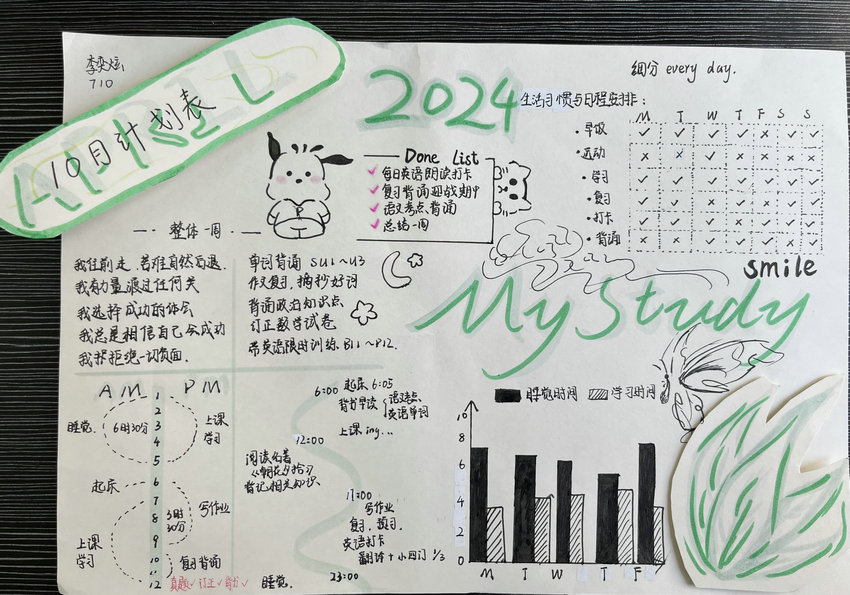 710
10月计划表
2024
细分 every day.
生活习惯与日程安排：
M T W T F S S
·早饭 ✓ ✓ ✓ ✓ × ✓ ✓
·运动 × × ✓ × × × ×
·学习 ✓ ✓ ✓ ✓ ✓ ✓ ✓
·复习
·打卡
·背诵
smile
Done List
✓ 每日英语朗读打卡
✓ 复习背诵迎战期中
✓ 语文考点、背诵
✓ 总结一周
整体一周
我往前走，苦难自然后退.
我有力量渡过任何关
我选择成功的体会
我总是相信自己会成功
我将拒绝一切负面.
单词背诵 SU1~U3
作文复习，摘抄好词
背诵政治知识点、
订正数学试卷
带英语限时训练 B11~P12.
My Study
AM PM
1
2
3
4
5
6
7
8
9
10
11
12
睡觉.
6时30分
上课
学习
起床
写作业
3时
30分
上课
学习
复习背诵
真题✓ 订正✓ 背书✓
睡觉.
23:00
6:00 起床 6:05
背书早读
语文考点、
英语单词
上课 ing...
12:00
阅读名著
《朝花夕拾》
背记相关知识、
写作业
复习、预习.
英语打卡
睡眠时间 学习时间
10
8
6
4
2
0
M T W T F